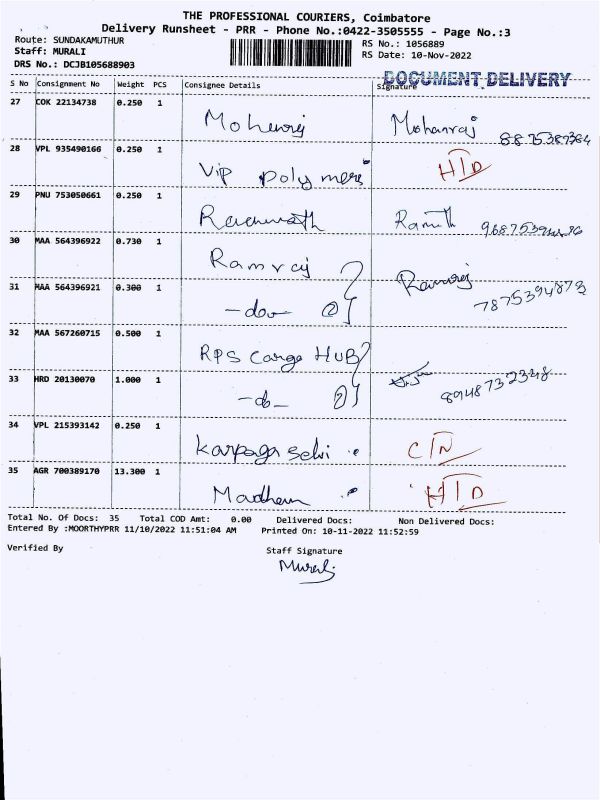 THE PROFESSIONAL COURIERS, Coimbatore
Delivery Runsheet - PRR - Phone No.:0422-3505555 - Page No.:3
Route: SUNDAKAMUTHUR
Staff: MURALI
DRS No.: DCJB105688903
RS No.: 1056889
RS Date: 10-Nov-2022
DOCUMENT DELIVERY
S No Consignment No Weight PCS Consignee Details Signature
27 COK 22134738 0.250 1 Mohanraj
28 VPL 935490166 0.250 1 Vip polymers H/D
29 PNU 753050661 0.250 1
30 MAA 564396922 0.730 1 Ramraj
31 MAA 564396921 0.300 1
32 MAA 567260715 0.500 1 RPS Cargo HUB
33 HRD 20130070 1.000 1 8948732348
34 VPL 215393142 0.250 1 karpaga selvi
35 AGR 700389170 13.300 1 H/D
Total No. Of Docs: 35 Total COD Amt: 0.00 Delivered Docs: Non Delivered Docs:
Entered By :MOORTHYPRR 11/10/2022 11:51:04 AM Printed On: 10-11-2022 11:52:59
Verified By
Staff Signature
Murali